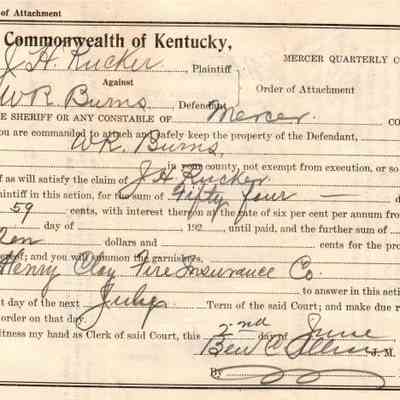 of Attachment
Commonwealth of Kentucky,
J. H. Rucker, Plaintiff
MERCER QUARTERLY C
Against
Order of Attachment
W R Burns, Defendant
E SHERIFF OR ANY CONSTABLE OF Mercer CO
ou are commanded to attach and safely keep the property of the Defendant,
W R. Burns,
in your county, not exempt from execution, or so
f as will satisfy the claim of J. H. Rucker
aintiff in this action, for the sum of Fifty Four — d
59 cents, with interest thereon at the rate of six per cent per annum from
day of , 192 until paid, and the further sum of
Ten dollars and cents for the pro
ereof; and you will summon the garnishers,
Henry Clay Fire Insurance Co.
to answer in this action
st day of the next July Term of the said Court; and make due r
order on that day.
itness my hand as Clerk of said Court, this 2nd day of June
Ben C. J. M.
By